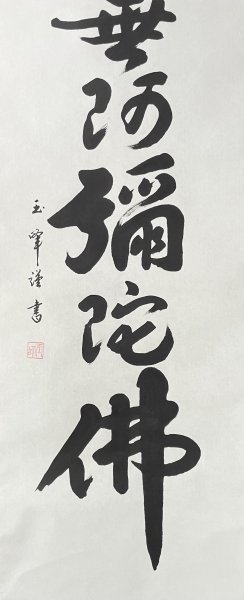 無阿彌陀佛
玉峰謹書